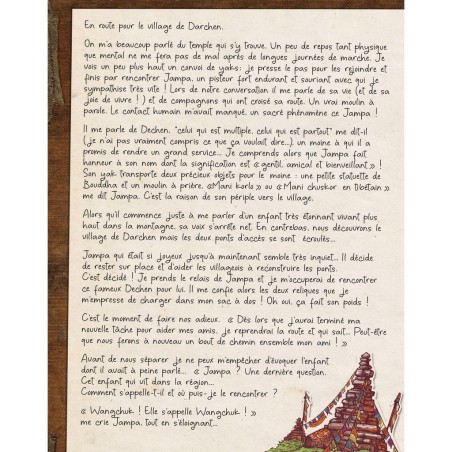 En route pour le village de Darchen.
On m'a beaucoup parlé du temple qui s'y trouve. Un peu de repos tant physique
que mental ne me fera pas de mal après de longues journées de marche. Je
vois un peu plus haut un convoi de yaks; je presse le pas pour les rejoindre et
finis par rencontrer Jampa, un posteur fort endurant et souriant avec qui je
sympathise très vite ! Lors de notre conversation il me parle de sa vie (et de sa
joie de vivre ! ) et de compagnons qui ont croisé sa route. Un vrai moulin à
parole. Le contact humain m'avait manqué, un sacré phénomène ce Jampa !
Il me parle de Dechen, "celui qui est multiple, celui qui est partout" me dit-il
(je n'ai pas vraiment compris ce que ça voulait dire...), un moine à qui il a
promis de rendre un grand service... Je comprends alors que Jampa fait
honneur à son nom dont la signification est « gentil, amical et bienveillant » !
Son yak transporte deux précieux objets pour le moine : une petite statuette de
Bouddha et un moulin à prière, « Mani korlo » ou « Mani chuskor en tibétain »
me dit Jampa. C'est la raison de son périple vers le village.
Alors qu'il commence juste à me parler d'un enfant très étonnant vivant plus
haut dans la montagne, sa voix s'arrête net. En contrebas, nous découvrons le
village de Darchen mais les deux ponts d'accès se sont écroulés...
Jampa qui était si joyeux jusqu'à maintenant semble très inquiet... Il décide
de rester sur place et d'aider les villageois à reconstruire les ponts.
C'est décidé ! Je prends le relais de Jampa et je m'occuperai de rencontrer
ce fameux Dechen pour lui. Il me confie alors les deux reliques que je
m'empresse de charger dans mon sac à dos ! Oh oui, ça fait son poids !
C'est le moment de faire nos adieux. « Dès lors que j'aurai terminé ma
nouvelle tâche pour aider mes amis, je reprendrai la route et qui sait... Peut-être
que nous ferons à nouveau un bout de chemin ensemble mon ami ! »
Avant de nous séparer je ne peux m'empêcher d'évoquer l'enfant
dont il avait à peine parlé... « Jampa ? Une dernière question.
Cet enfant qui vit dans la région...
Comment s'appelle-t-il et où puis-je le rencontrer ?
« Wangchuk ! Elle s'appelle Wangchuk ! »
me crie Jampa, tout en s'éloignant...